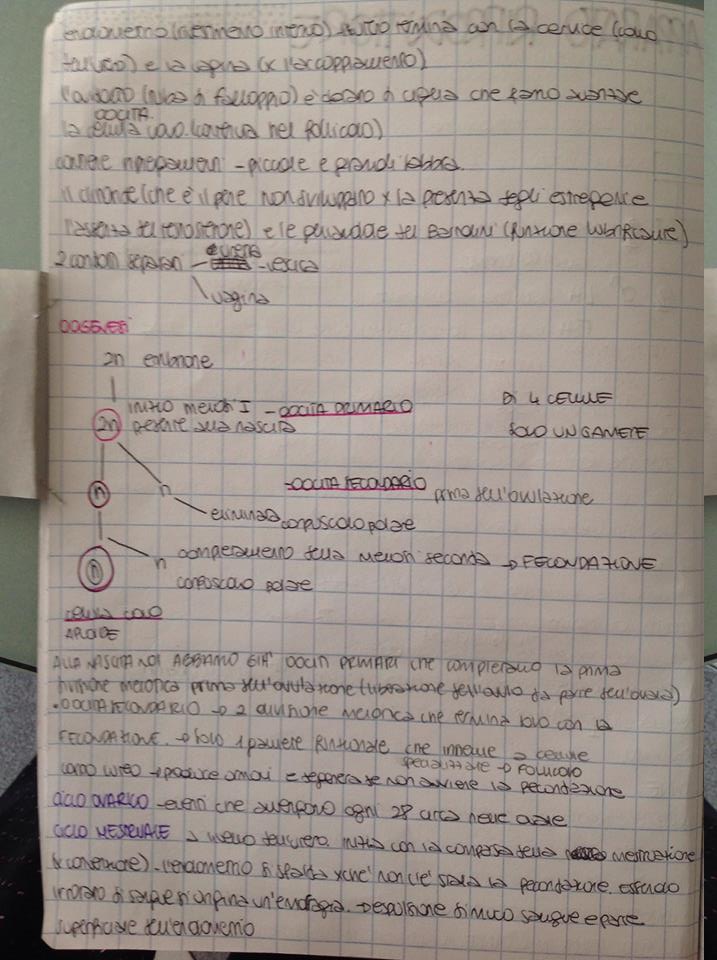 endometrio (rivestimento interno) utero termina con la cervice (collo
dell'utero) e la vagina (x l'accoppiamento)
l'ovidotto (tuba di falloppio) è dotato di ciglia che fanno avanzare
OOCITA
la cellula uovo (contenuta nel follicolo)
- piccole e grandi labbra
il clitoride (che è il pene non sviluppato x la presenza degli estrogeni e
l'assenza del testosterone) e le ghiandole del Bartolini (funzione lubrificante)
2 condotti separati - uretra - vescica
\ vagina
OOGENESI
2n embrione
inizio meiosi I - OOCITA PRIMARIO
DI 4 CELLULE
2n presente alla nascita
SOLO UN GAMETE
- OOCITA SECONDARIO prima dell'ovulazione
n n
eliminata corpuscolo polare
n completamento della meiosi seconda → FECONDAZIONE
n corpuscolo polare
cellula uovo
APLOIDE
ALLA NASCITA NOI ABBIAMO GIA' OOCITI PRIMARI che completeranno la prima
divisione meiotica prima dell'ovulazione (liberazione dell'ovulo da parte dell'ovaio)
• OOCITA SECONDARIO → 2 divisione meiotica che termina solo con la
FECONDAZIONE. → solo 1 gamete funzionale che insieme a cellule
specializzate → FOLLICOLO
corpo luteo → produce ormoni e degenera se non avviene la fecondazione
CICLO OVARICO - eventi che avvengono ogni 28 circa nelle ovaie
CICLO MESTRUALE → livello dell'utero. inizia con la comparsa della mestruazione
(x convenzione). L'endometrio si sfalda xchè non c'è stata la fecondazione. essendo
irrorato di sangue si origina un'emorragia. → espulsione di muco sangue e parte
superficiale dell'endometrio